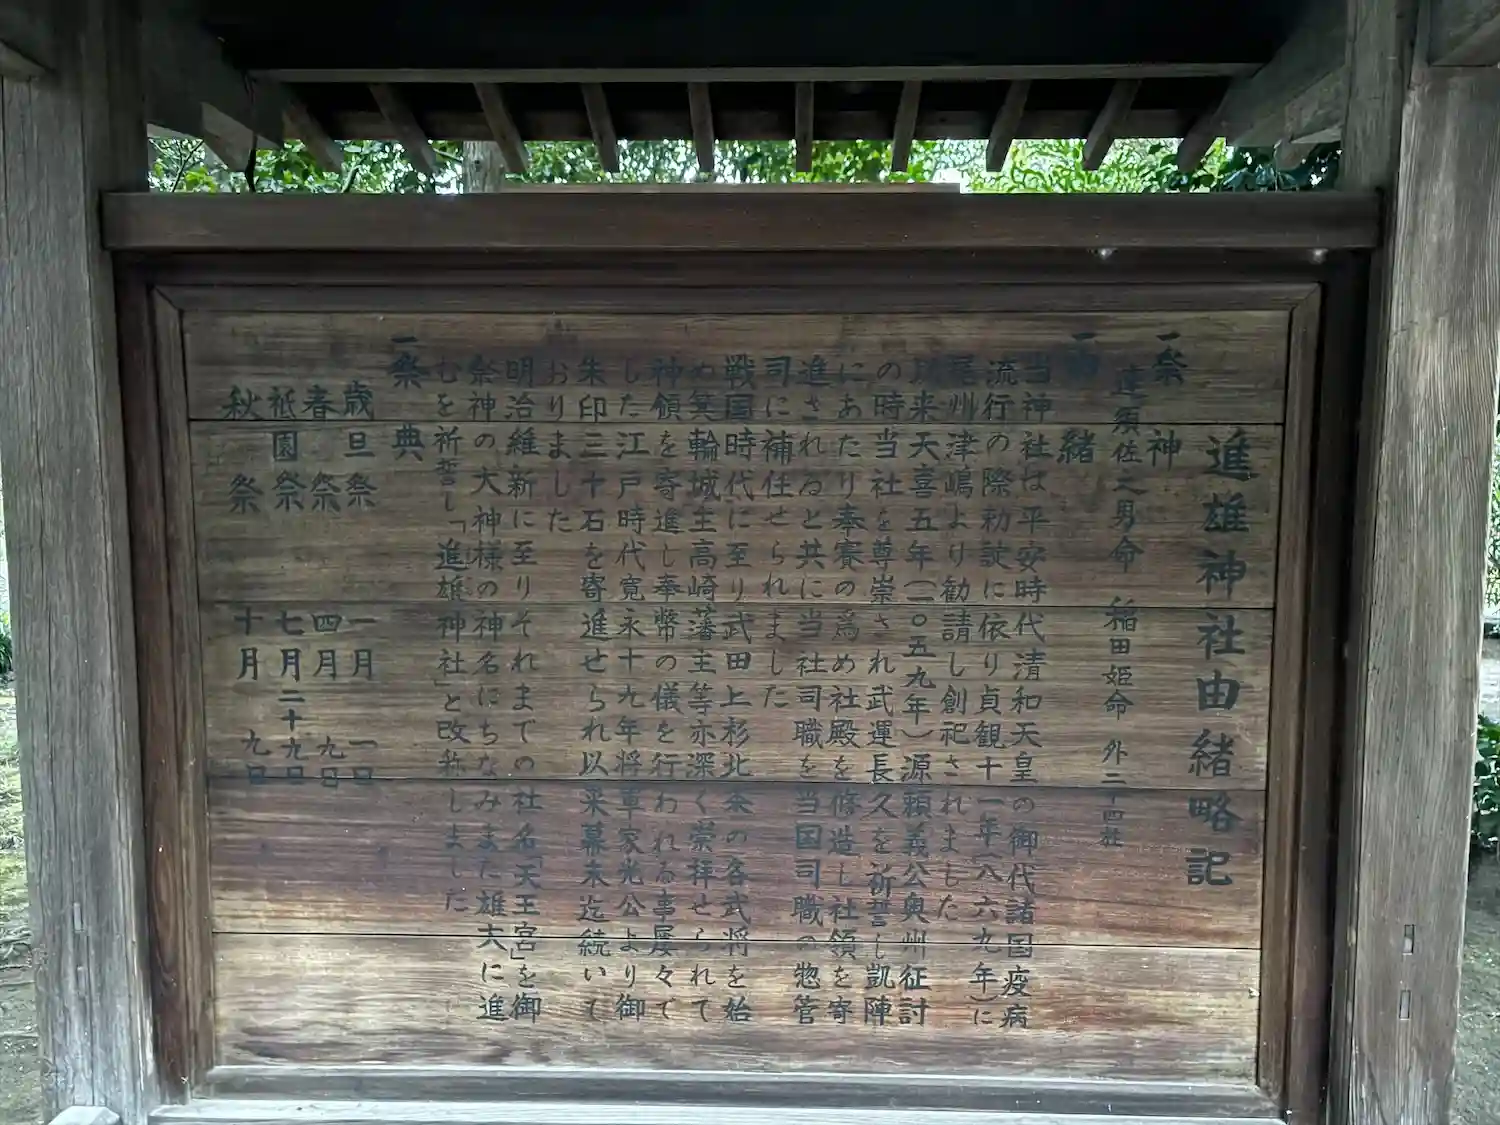 進雄神社由緒略記
一祭神
速須佐之男命 稲田姫命 外二十四社
一由緒
当神社は平安時代清和天皇の御代諸国疫病
流行の際勅諚に依り貞観十一年(八六九年)に
尾州津嶋より勧請し創祀されました
以来天喜五年(一〇五九年)源頼義公奥州征討
の時当社を尊崇され武運長久を祈誓し凱陣
にあたり奉賽の為め社殿を修造し社領を寄
進されると共に当社司職を当国司職の惣管
司に補任せられました
戦国時代に至り武田上杉北条の各武将を始
め箕輪城主高崎藩主等亦深く崇拝せられて
神領を寄進し奉幣の儀を行われる事屡々で
した江戸時代寛永十九年将軍家光公より御
朱印三十石を寄進せられ以来幕末迄続いて
おりました
明治維新に至りそれまでの社名「天王宮」を御
祭神の大神様の神名にちなみまた雄大に進
むを祈誓し「進雄神社」と改称しました
一祭典
歳旦祭 一月一日
春祭 四月九日
祇園祭 七月二十九日
秋祭 十月九日